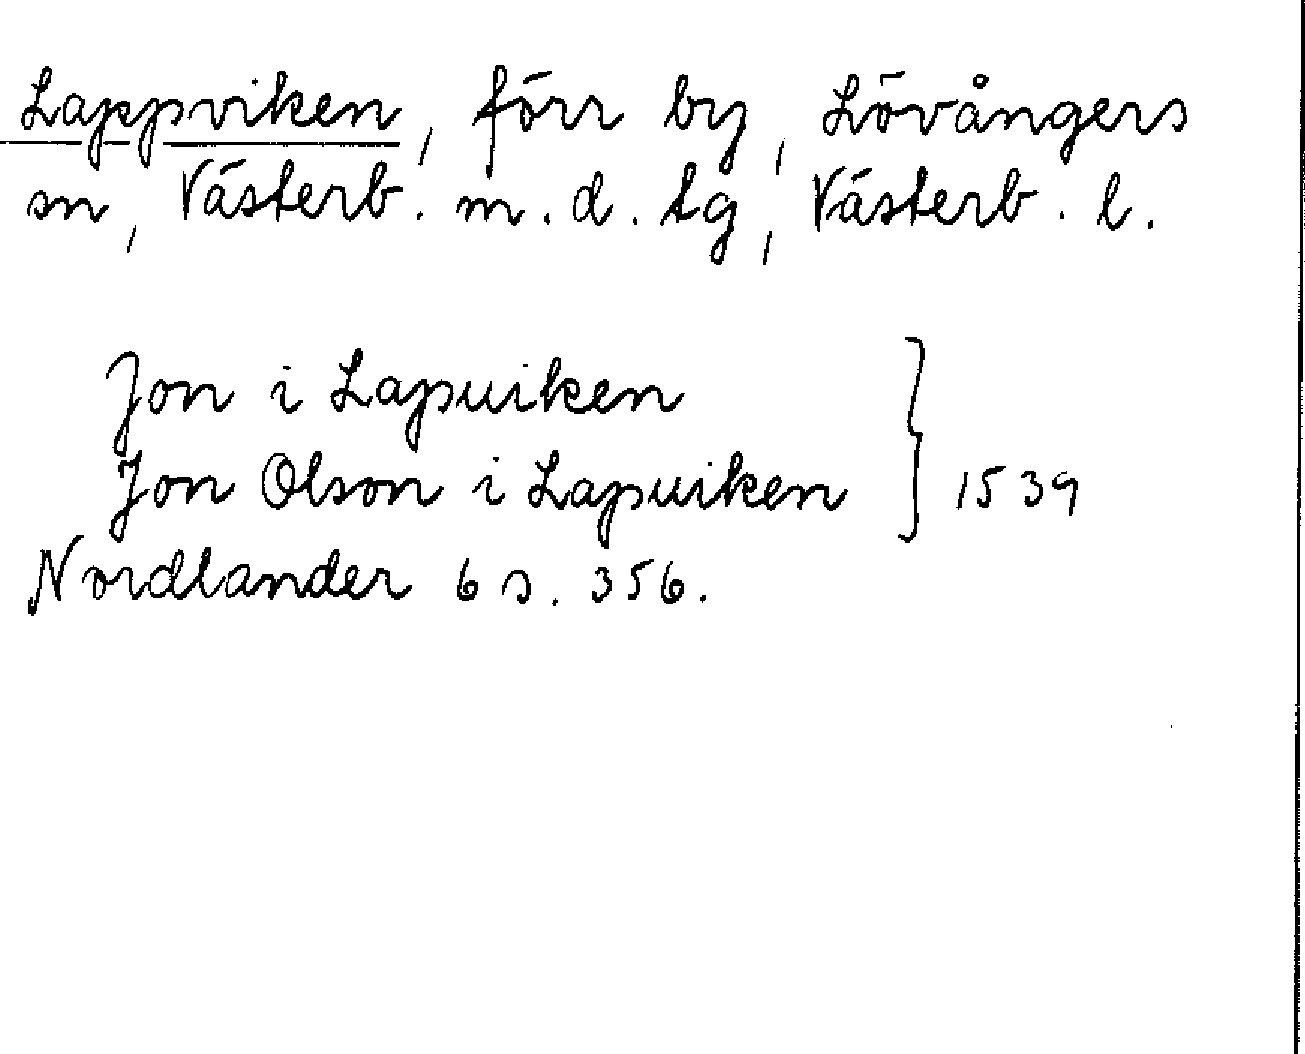 Lappviken, förr by, Lövångers
sn, Västerb. m. d. tg, Västerb. l.
Jon i Lapuiken
Jon Olson i Lapuiken } 1539
Nordlander 6 s. 356.